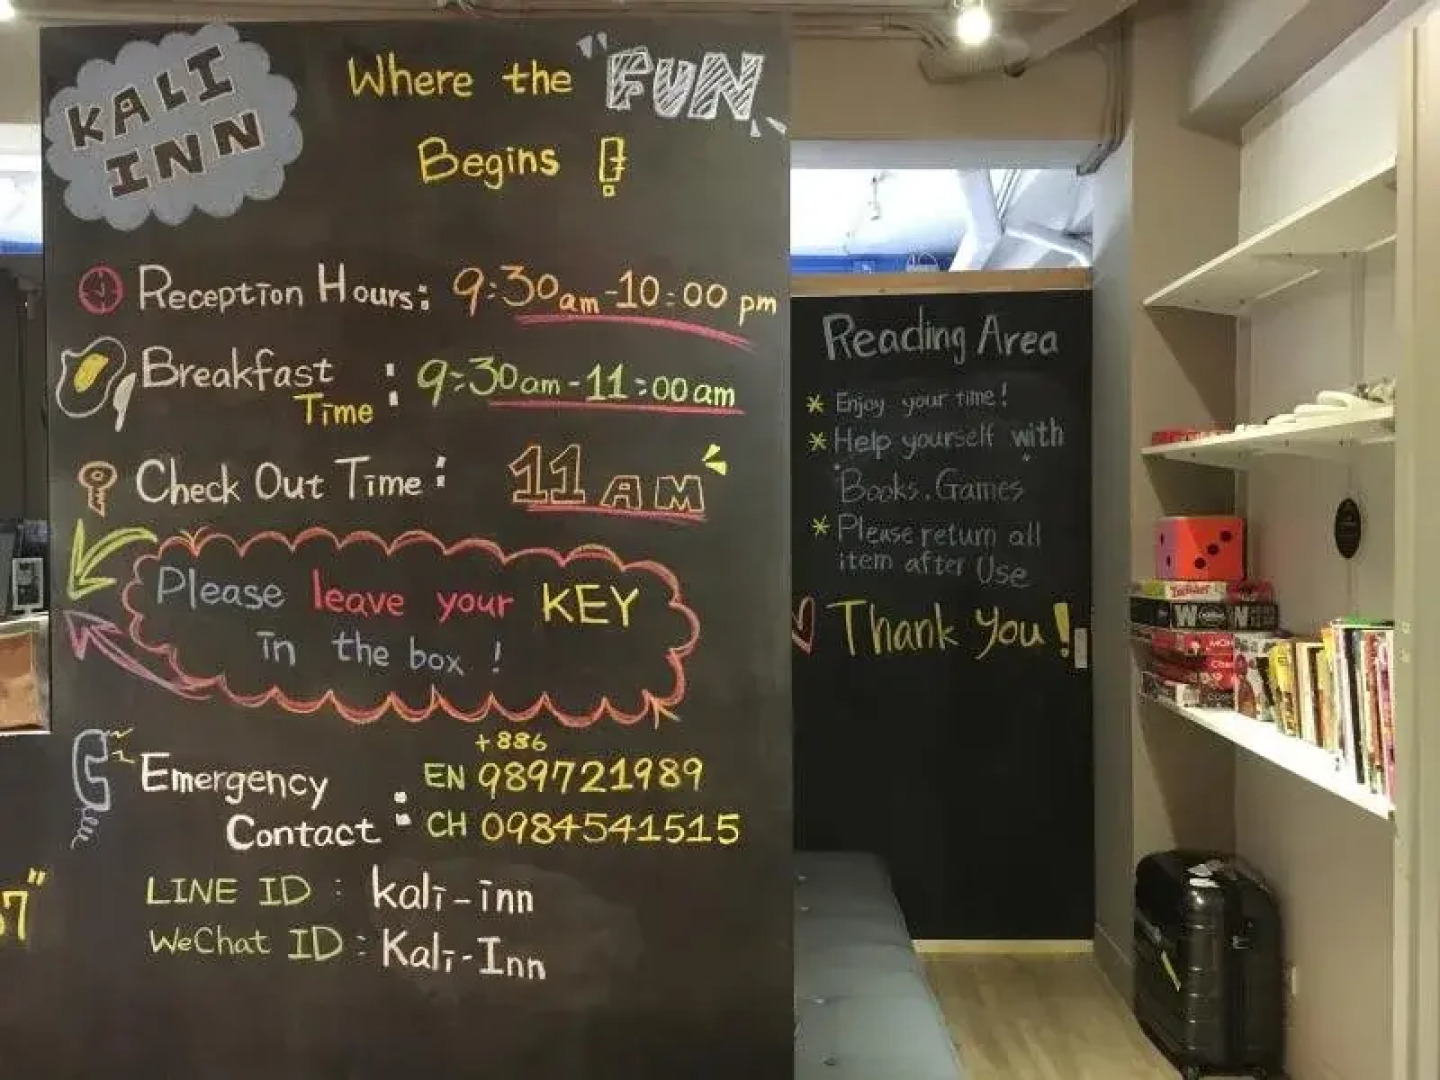 KALI
INN
Where the "FUN"
Begins !
Reception Hours: 9:30am-10:00 pm
Breakfast
Time : 9:30am-11:00am
Check Out Time: 11 AM
Please leave your KEY
in the box !
+886
Emergency EN 989721989
Contact : CH 0984541515
LINE ID : kali-inn
WeChat ID : Kali-Inn
7"
Reading Area
* Enjoy your time!
* Help yourself with
"Books. Games"
* Please return all
item after Use
Thank you!